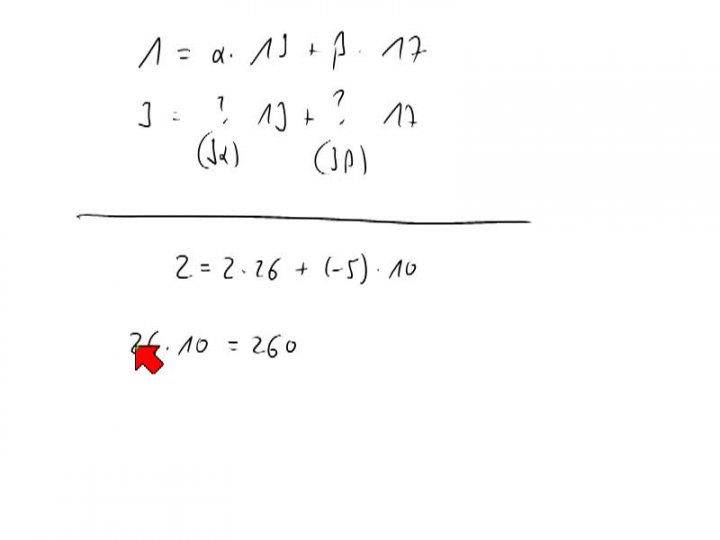 1 = α · 13 + β · 17
3 = ? · 13 + ? · 17
(3α) (3β)
2 = 2 · 26 + (-5) · 10
26 · 10 = 260